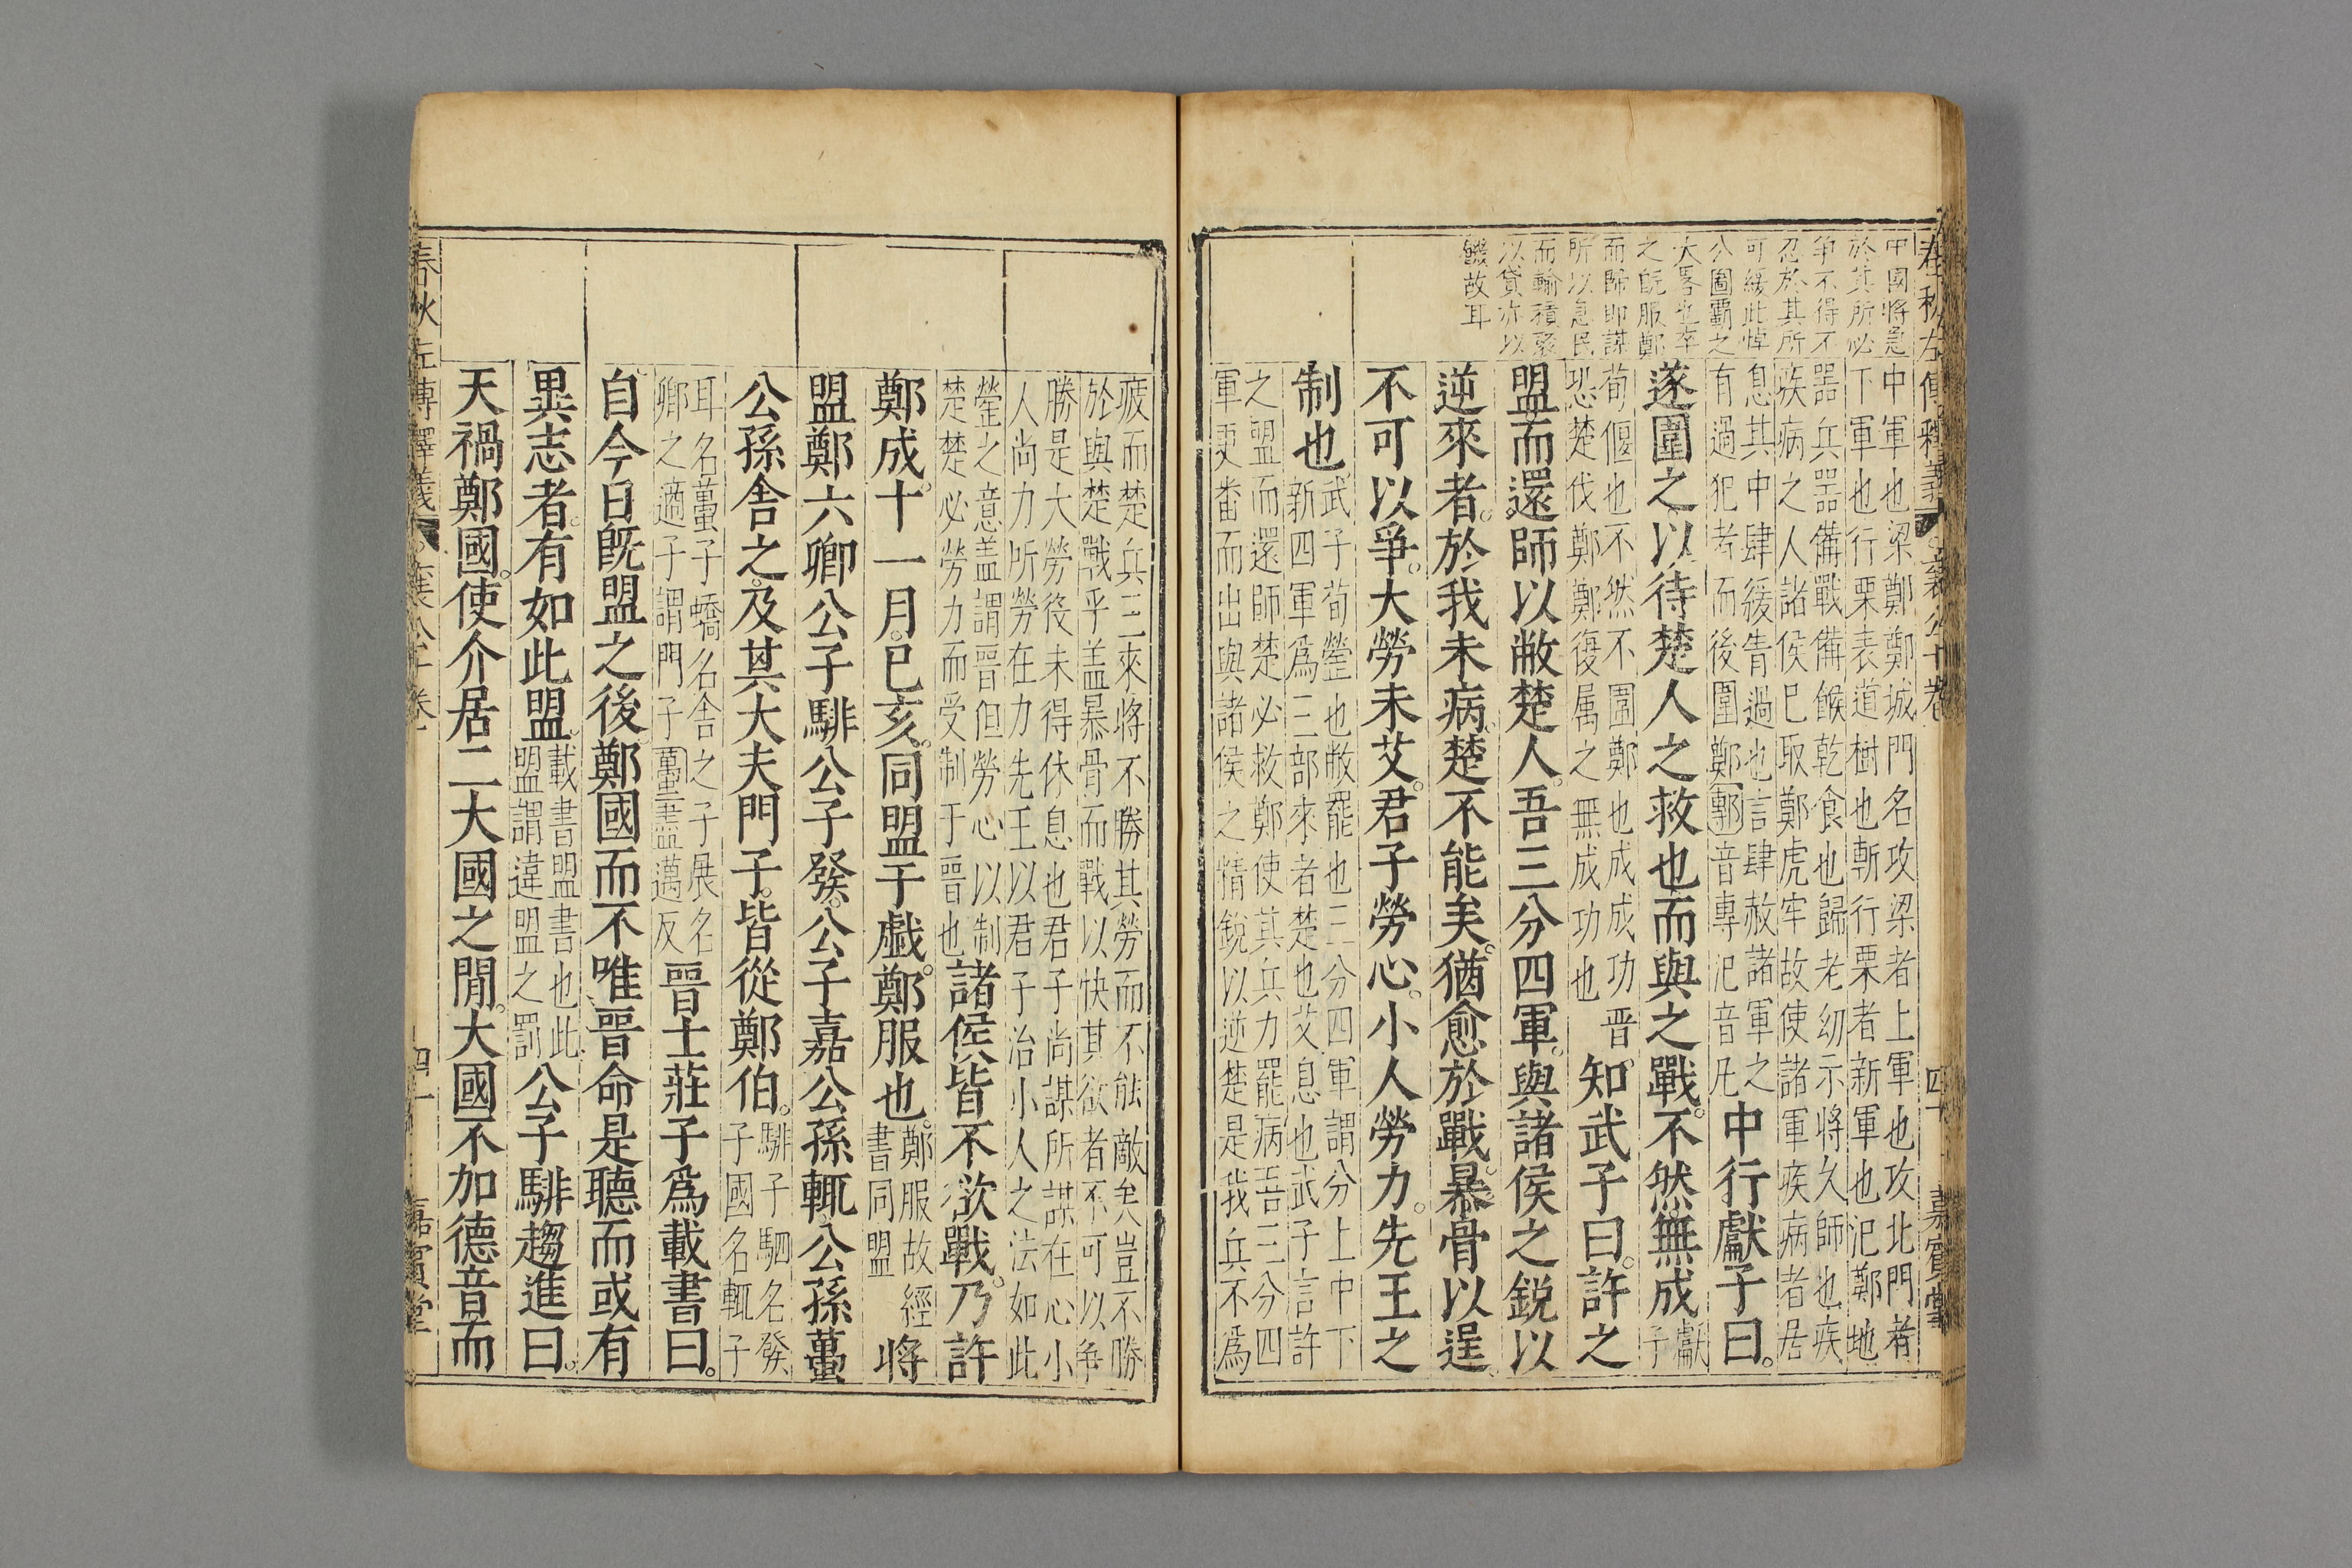 春秋左傳釋義 襄公十卷 四十 嘉賓堂
中國將急
於其所必
爭不得不
忍於其所
可緩此悼
公圖覇之
大畧也卒
之旣服鄭
而歸即謀
所以息民
而輸積聚
以貸亦以
饑故耳
中軍也梁鄭鄭城門名攻梁者上軍也攻北門者
下軍也行栗表道樹也斬行栗者新軍也汜鄭地
噐兵噐備戰備餱乾食也歸老幼示將久師也疾
疾病之人諸侯巳取鄭虎牢故使諸軍疾病者居
息其中肆緩眚過也言肆赦諸軍之
有過犯者而後圍鄭鄟音專汜音凡
中行獻子曰。
遂圍之以待楚人之救也而與之戰。不然無成
獻
子
荀偃也不然不圍鄭也成成功晋
恐楚伐鄭鄭復属之無成功也
知武子曰。許之
盟而還師以敝楚人。吾三分四軍。與諸侯之鋭以
逆來者。於我未病。楚不能矣。猶愈於戰。暴骨以逞
不可以爭。大勞未艾。君子勞心。小人勞力。先王之
制也
武子荀罃也敝罷也三分四軍謂分上中下
新四軍爲三部來者楚也艾息也武子言許
之盟而還師楚必救鄭使其兵力罷病吾三分四
軍更番而出與諸侯之精鋭以逆楚是我兵不爲
疲而楚兵三來將不勝其勞而不能敵矣豈不勝
於與楚戰乎盖暴骨而戰以快其欲者不可以爭
勝是大勞役未得休息也君子尚謀所謀在心小
人尚力所勞在力先王以君子治小人之法如此
罃之意盖謂晉但勞心以制
楚楚必勞力而受制于晉也
諸侯皆不欲戰。乃許
鄭成。十一月。巳亥。同盟于戯。鄭服也。
鄭服故經
書同盟
將
盟鄭六卿公子騑公子發。公子嘉公孫輒。公孫蠆
公孫舍之。及其大夫門子。皆從鄭伯。
騑子駟名發
子國名輒子
耳名蠆子蟜名舍之子展名
卿之適子謂門子蠆䘍邁反
晉士莊子爲載書曰。
自今日旣盟之後。鄭國而不唯晉命是聽而或有
異志者。有如此盟。
載書盟書也此
盟謂違盟之罰
公子騑趨進曰。
天禍鄭國。使介居二大國之閒。大國不加德音而
春秋左傳釋義 襄公十卷 四十一 嘉賓堂